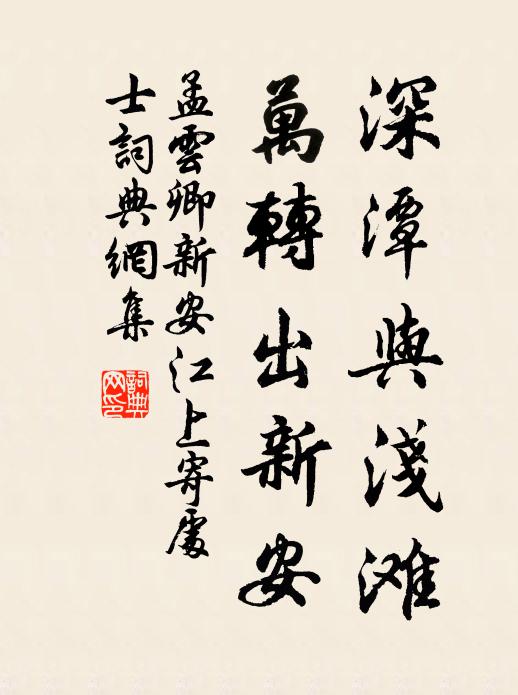 深潭與淺滩
萬轉出新安
孟雲卿新安江上寄處
士詞典網集
詞典
网印